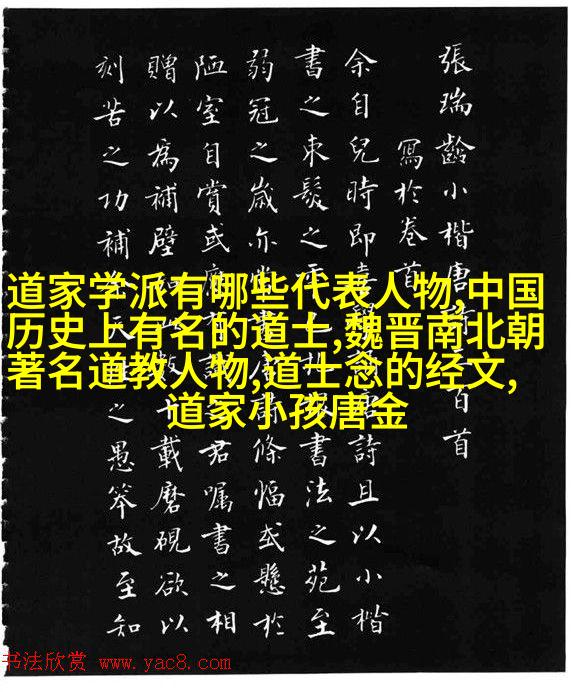 道家学派有哪些代表人物,中国
历史上有名的道士,魏晋南北朝
著名道教人物,道士念的经文,
道家小孩唐金
張瑞齡小楷唐詩百首
寫於卷首
余自兒時即喜詩且以小楷
書之束髮之年書法之苑至
弱冠之歲亦條幅或懸於
陋室自賞或應君嘱書之相
贈以為補壁載磨硯欲以
刻苦之功補之愚笨故至知
书法欣赏 www.yac8.com